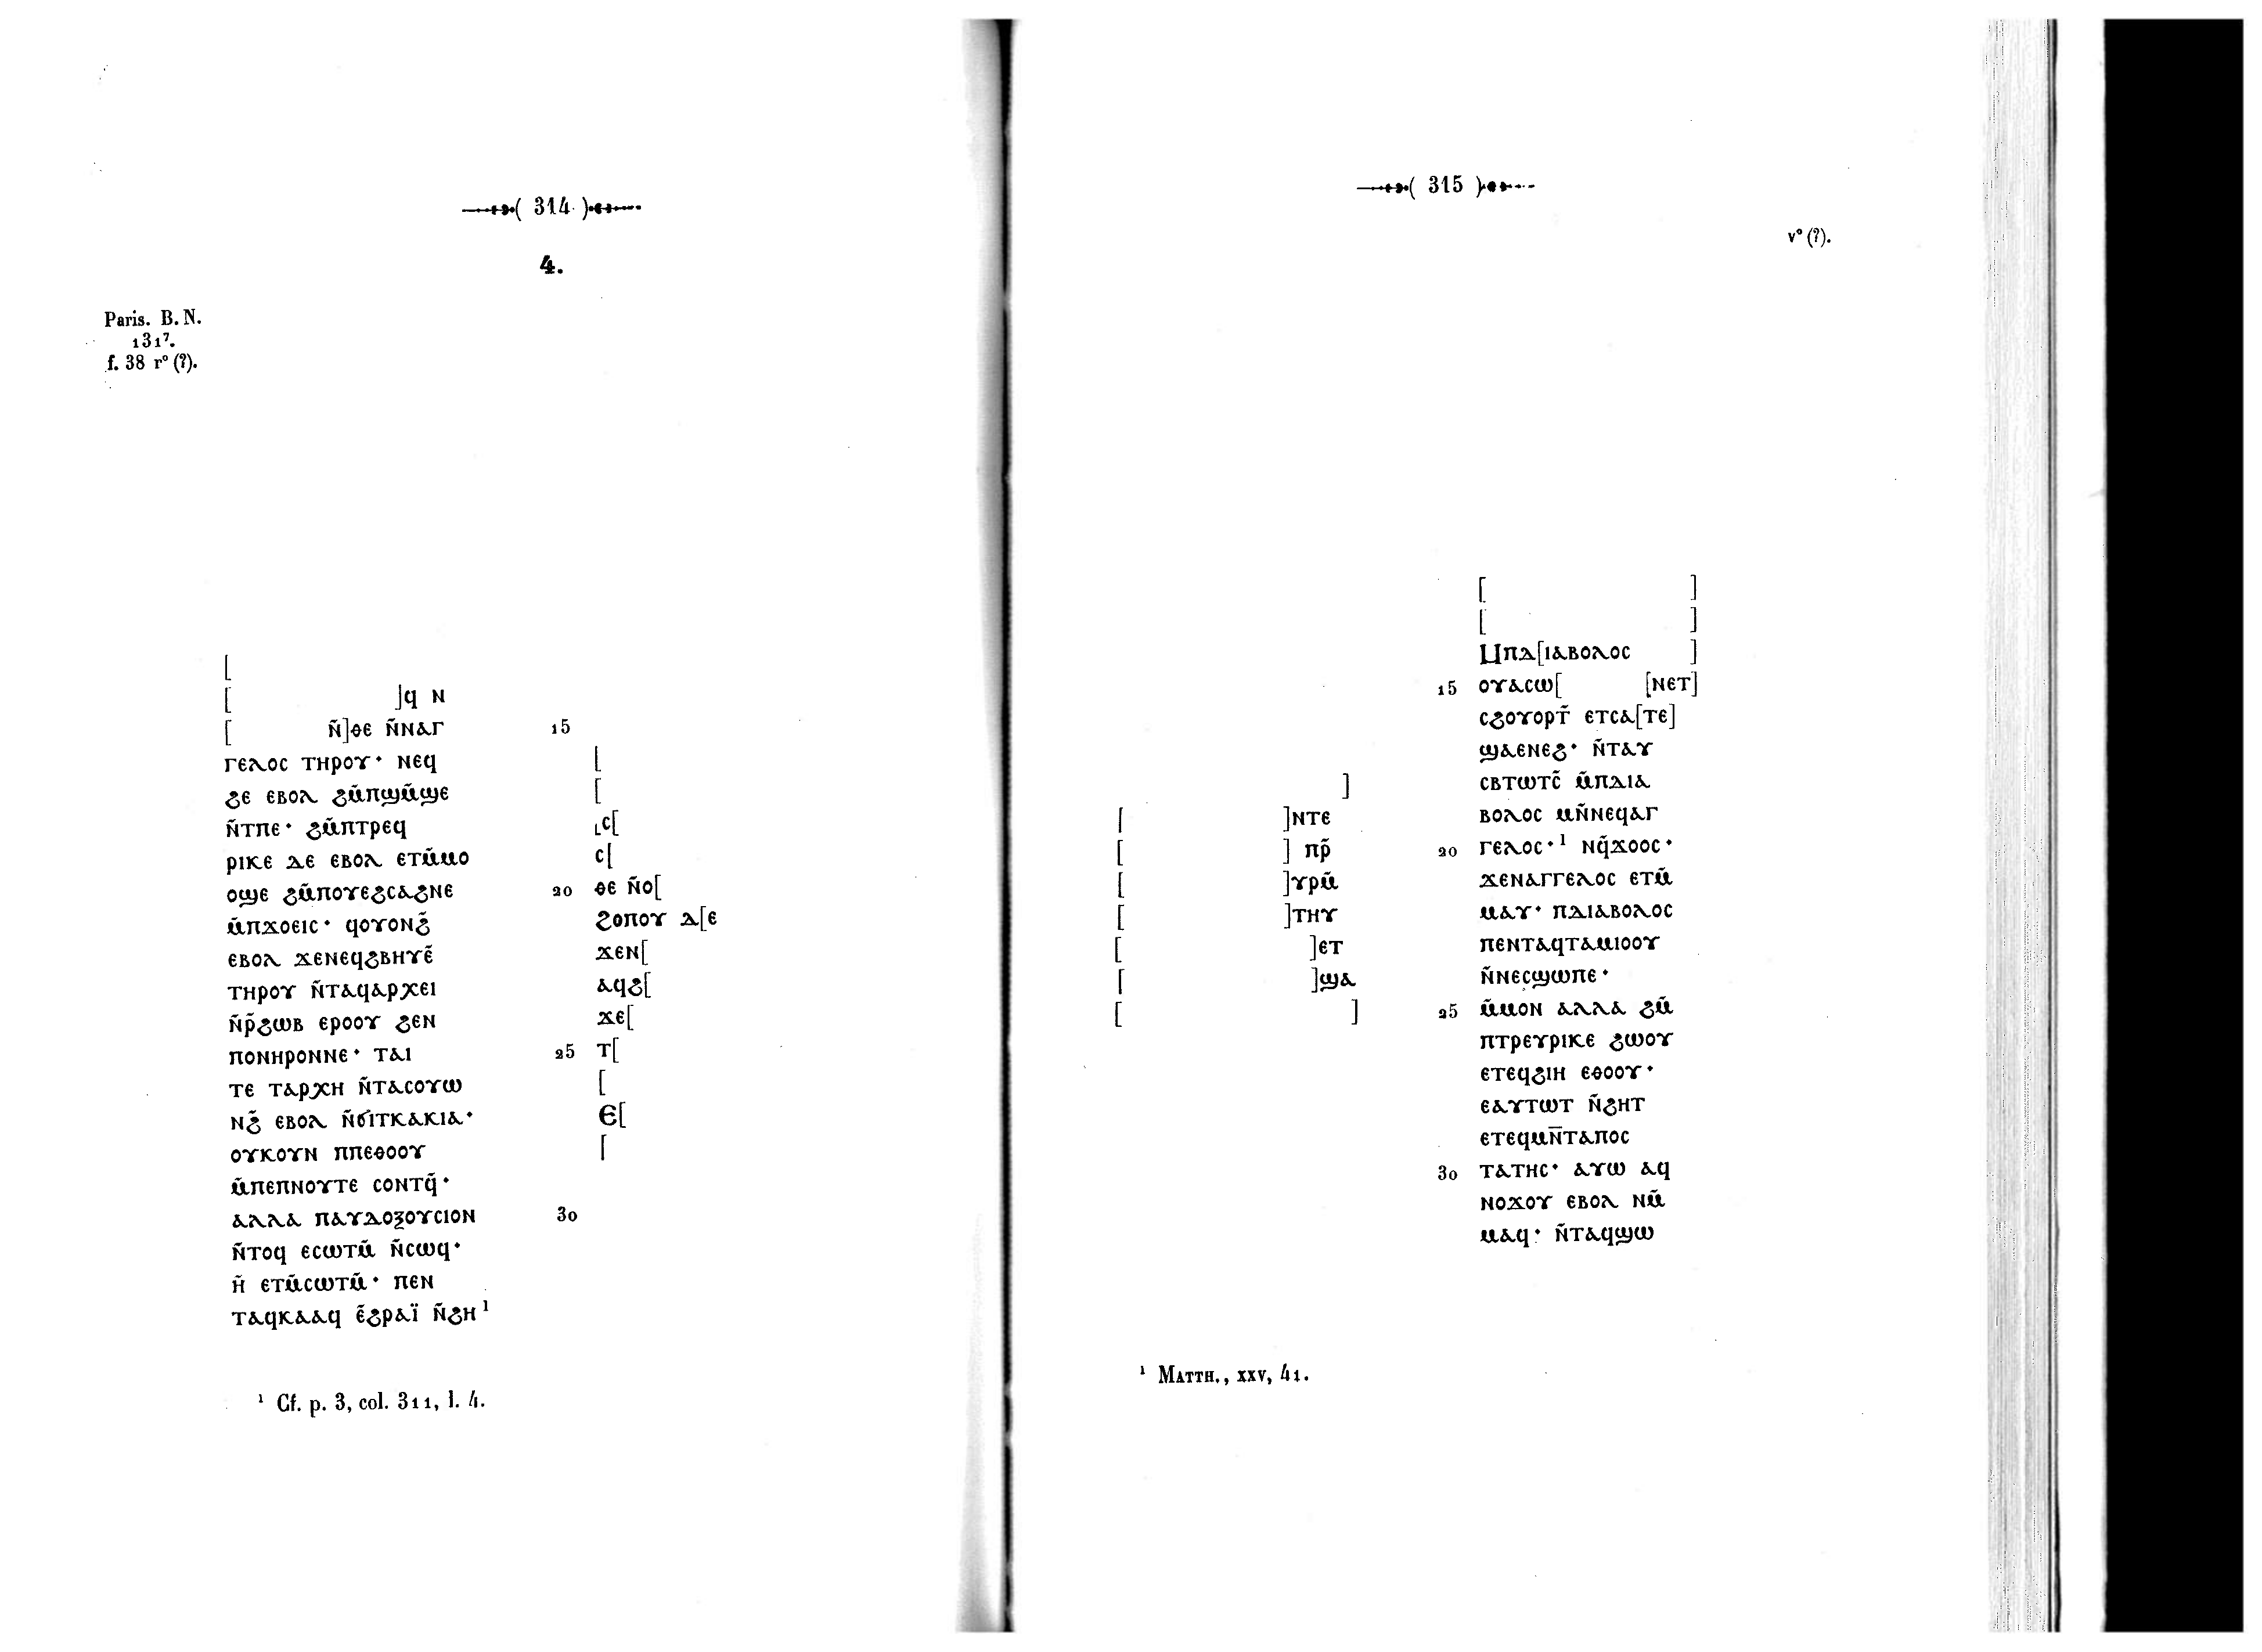 314
4.
Paris. B. N.
131⁷.
f. 38 rº (?).
[
[ ]ϥ ⲛ
[ ⲛ̄]ⲑⲉ ⲛ̄ⲛⲁⲅ
ⲅⲉⲗⲟⲥ ⲧⲏⲣⲟⲩ· ⲛⲉϥ
ϩⲉ ⲉⲃⲟⲗ ϩⲙ̄ⲡϣⲙ̄ϣⲉ
ⲛ̄ⲧⲡⲉ· ϩⲙ̄ⲡⲧⲣⲉϥ
ⲣⲓⲕⲉ ⲇⲉ ⲉⲃⲟⲗ ⲉⲧⲙ̄ⲙⲟ
ⲟϣⲉ ϩⲙ̄ⲡⲟⲩⲉϩⲥⲁϩⲛⲉ
ⲙ̄ⲡϫⲟⲉⲓⲥ· ϥⲟⲩⲟⲛϩ̄
ⲉⲃⲟⲗ ϫⲉⲛⲉϥϩⲃⲏⲩⲉ̄
ⲧⲏⲣⲟⲩ ⲛ̄ⲧⲁϥⲁⲣⲭⲉⲓ
ⲛ̄ⲣ̄ϩⲱⲃ ⲉⲣⲟⲟⲩ ϩⲉⲛ
ⲡⲟⲛⲏⲣⲟⲛⲛⲉ· ⲧⲁⲓ
ⲧⲉ ⲧⲁⲣⲭⲏ ⲛ̄ⲧⲁⲥⲟⲩⲱ
ⲛϩ̄ ⲉⲃⲟⲗ ⲛ̄ϭⲓⲧⲕⲁⲕⲓⲁ·
ⲟⲩⲕⲟⲩⲛ ⲡⲡⲉⲑⲟⲟⲩ
ⲙ̄ⲡⲉⲡⲛⲟⲩⲧⲉ ⲥⲟⲛⲧϥ̄·
ⲁⲗⲗⲁ ⲡⲁⲩⲇⲟⲝⲟⲩⲥⲓⲟⲛ
ⲛ̄ⲧⲟϥ ⲉⲥⲱⲧⲙ̄ ⲛ̄ⲥⲱϥ·
ⲏ̄ ⲉⲧⲙ̄ⲥⲱⲧⲙ̄· ⲡⲉⲛ
ⲧⲁϥⲕⲁⲁϥ ⲉ̄ϩⲣⲁⲓ̈ ⲛ̄ϩⲏ ¹
15
[
[
⌊ⲥ[
ⲥ[
20 ⲑⲉ ⲛ̄ⲟ[
ϩⲟⲡⲟⲩ ⲇ[ⲉ
ϫⲉⲛ[
ⲁϥϩ[
ϫⲉ[
25 ⲧ[
[
ⲉ[
[
30
¹ Cf. p. 3, col. 311, l. 4.
315
vº (?).
]
[ ]ⲛⲧⲉ
[ ] ⲡⲣ̄
[ ]ⲩⲣⲙ̄
[ ]ⲧⲏⲩ
[ ]ⲉⲧ
[ ]ϣⲁ
[ ]
[ ]
[ ]
ⲙⲡⲇ[ⲓⲁⲃⲟⲗⲟⲥ ]
15 ⲟⲩⲁⲥⲱ[ [ⲛⲉⲧ]
ⲥϩⲟⲩⲟⲣⲧ̄ ⲉⲧⲥⲁ[ⲧⲉ]
ϣⲁⲉⲛⲉϩ· ⲛ̄ⲧⲁⲩ
ⲥⲃⲧⲱⲧⲥ̄ ⲙ̄ⲡⲇⲓⲁ
ⲃⲟⲗⲟⲥ ⲙⲛ̄ⲛⲉϥⲁⲅ
20 ⲅⲉⲗⲟⲥ·¹ ⲛϥ̄ϫⲟⲟⲥ·
ϫⲉⲛⲁⲅⲅⲉⲗⲟⲥ ⲉⲧⲙ̄
ⲙⲁⲩ· ⲡⲇⲓⲁⲃⲟⲗⲟⲥ
ⲡⲉⲛⲧⲁϥⲧⲁⲙⲓⲟⲟⲩ
ⲛ̄ⲛⲉⲥϣⲱⲡⲉ·
25 ⲙ̄ⲙⲟⲛ ⲁⲗⲗⲁ ϩⲙ̄
ⲡⲧⲣⲉⲩⲣⲓⲕⲉ ϩⲱⲟⲩ
ⲉⲧⲉϥϩⲓⲏ ⲉⲑⲟⲟⲩ·
ⲉⲁⲩⲧⲱⲧ ⲛ̄ϩⲏⲧ
ⲉⲧⲉϥⲙⲛ̄ⲧⲁⲡⲟⲥ
30 ⲧⲁⲧⲏⲥ· ⲁⲩⲱ ⲁϥ
ⲛⲟϫⲟⲩ ⲉⲃⲟⲗ ⲛⲙ̄
ⲙⲁϥ· ⲛ̄ⲧⲁϥϣⲱ
¹ Matth., xxv, 41.